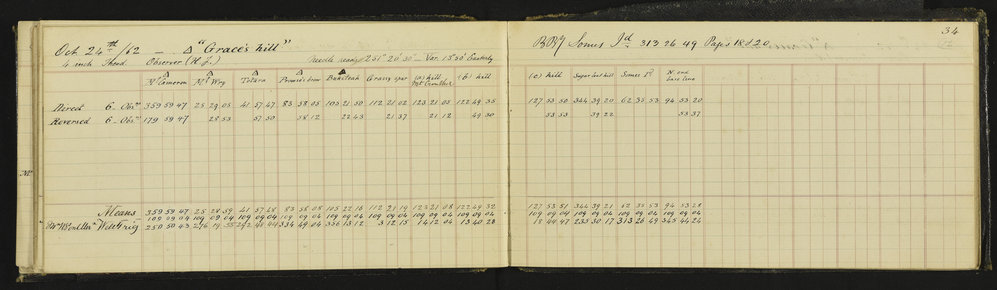 34
Oct 24th /62 — Δ "Grace's hill"
4 inch Theod. Observer (H. J.) Needle reads 251° 20' 30" — Var. 15° 50' Easterly
Somes Id 313 26 49 Pages 18 & 20
Mt Cameron Mt Way Totara Bakiteah Grassy spur (a) hill (b) hill
(c) hill Sugar loaf hill Somes Id N. end base line
Direct 6 – Obs. 359 59 47 25 29 05 41 57 47 83 58 05 105 21 50 112 21 02 123 21 05 122 49 35
127 53 50 344 39 20 62 35 53 94 53 20
Reversed 6 – Obs. 179 59 47 28 53 57 50 58 12 22 43 21 37 21 12 49 30
53 53 39 22 53 37
Means 359 59 47 25 28 59 41 57 48 83 58 08 105 22 16 112 21 19 123 21 08 122 49 32
127 53 51 344 39 21 62 35 53 94 53 28
109 09 04 109 09 04 109 09 04 109 09 04 109 09 04 109 09 04 109 09 04 109 09 04
109 09 04 109 09 04 109 09 04 109 09 04
250 50 43 276 19 55 334 49 04 356 13 12 3 12 15 14 12 04 13 40 28
18 44 47 235 30 17 313 26 49 345 44 24